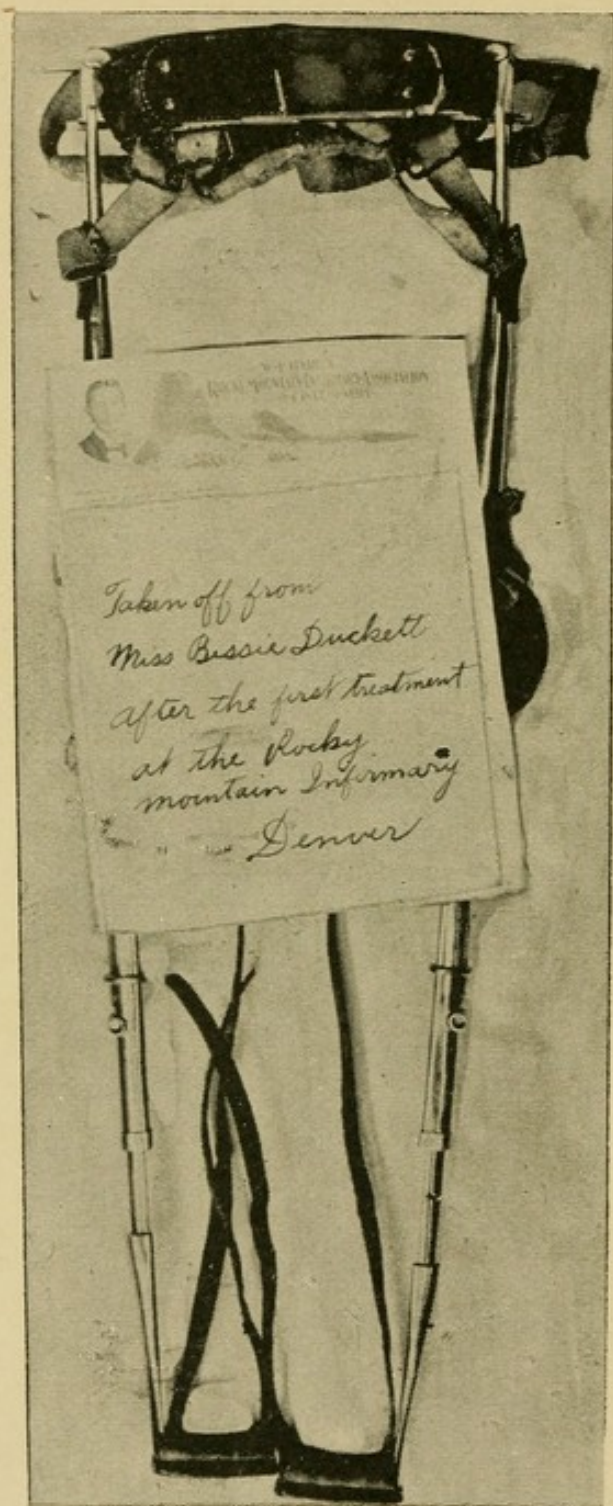 Taken off from
Miss Bessie Duckett
after the first treatment
at the Rocky
mountain Infirmary
Denver